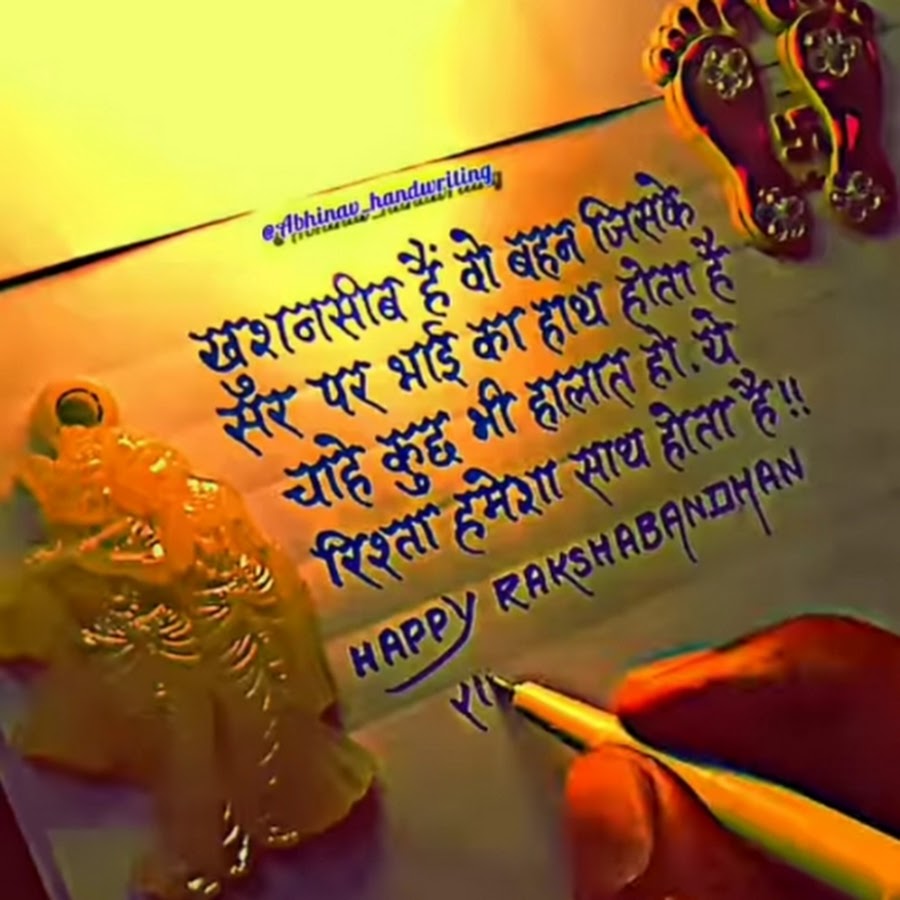 @Abhinav_handwriting
खुशनसीब हैं वो बहन जिसके
सँर पर भाई का हाथ होता है
चाहे कुछ भी हालात हो. ये
रिश्ता हमेशा साथ होता है!!
HAPPY RAKSHABANDHAN